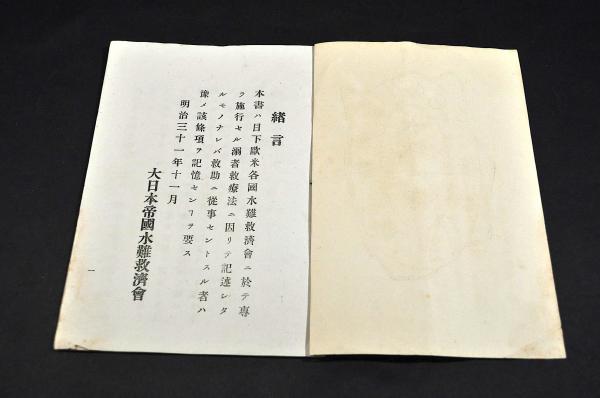 緒言
本書ハ目下歐米各國水難救濟會ニ於テ專
ラ施行セル溺者救療法ニ因リテ記述シタ
ルモノナレバ救助ニ從事セントスル者ハ
豫メ該條項ヲ記憶センヿヲ要ス
明治三十一年十一月
大日本帝國水難救濟會
一